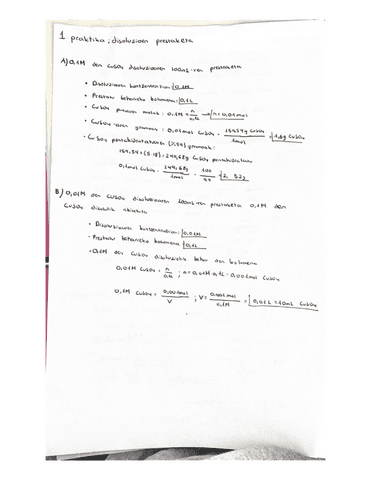 1. praktika: disoluzioen prestaketa
A) 0,1M den CuSO4 disoluzioaren 100mL-ren prestaketa
• Disoluzioaren kontzentrazioa: 0,1M
• Prestatu beharreko bolumena: 0,1L
• CuSO4 puruaren molak: 0,1M = n/0,1L → n = 0,01mol
• CuSO4-aren gramoak: 0,01mol CuSO4 · 159,54g CuSO4/1mol = 1,6g CuSO4
• CuSO4 pentahidratatuaren gramoak:
159,54 + (5·18) = 249,68g CuSO4 pentahidratatua
0,1mol CuSO4 · 249,68g/1mol · 100 = 2,52g
B) 0,01M den CuSO4 disoluzioaren 100mL-ren prestaketa 0,1M den
CuSO4 abiatuta
• Disoluzioaren kontzentrazioa: 0,01M
• Prestatu beharreko bolumena: 0,1L
• 0,1M den CuSO4 disoluziotik behar den bolumena
0,01M CuSO4 = n/0,1L ; n = 0,01M·0,1L = 0,001mol CuSO4
0,1M CuSO4 = 0,001mol/V ; V = 0,001mol/0,1M = 0,01L = 10mL CuSO4